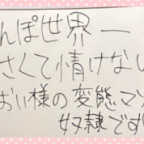 んぽ世界一
さくて情けない
おい様の変態マン
奴隷です